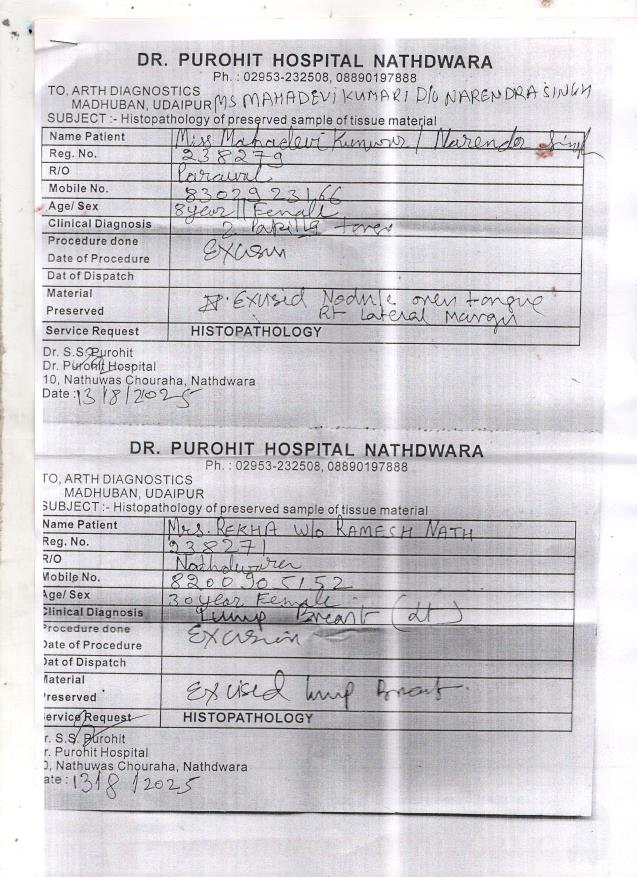 DR. PUROHIT HOSPITAL NATHDWARA
Ph. : 02953-232508, 08890197888
TO, ARTH DIAGNOSTICS
MADHUBAN, UDAIPUR MS MAHADEVI KUMARI D/O NARENDRA SINGH
SUBJECT :- Histopathology of preserved sample of tissue material
Name Patient Miss Mahadevi Kunwar / Narender Singh
Reg. No. 238279
R/O
Mobile No. 8302923166
Age/ Sex 8 year / Female
Clinical Diagnosis ? Papilla
Procedure done Excision
Date of Procedure
Dat of Dispatch
Material Excised Nodule over tongue
Preserved Rt Lateral Margin
Service Request HISTOPATHOLOGY
Dr. S.S. Purohit
Dr. Purohit Hospital
10, Nathuwas Chouraha, Nathdwara
Date : 13/8/2025
DR. PUROHIT HOSPITAL NATHDWARA
Ph. : 02953-232508, 08890197888
TO, ARTH DIAGNOSTICS
MADHUBAN, UDAIPUR
SUBJECT :- Histopathology of preserved sample of tissue material
Name Patient Mrs. REKHA W/o RAMESH NATH
Reg. No. 238271
R/O Nathdwara
Mobile No. 8200905152
Age/ Sex 30 year Female
Clinical Diagnosis Lump Breast (Lt)
Procedure done Excision
Date of Procedure
Dat of Dispatch
Material
Preserved Excised lump Breast
Service Request HISTOPATHOLOGY
r. S.S. Purohit
r. Purohit Hospital
0, Nathuwas Chouraha, Nathdwara
ate : 13/8/2025